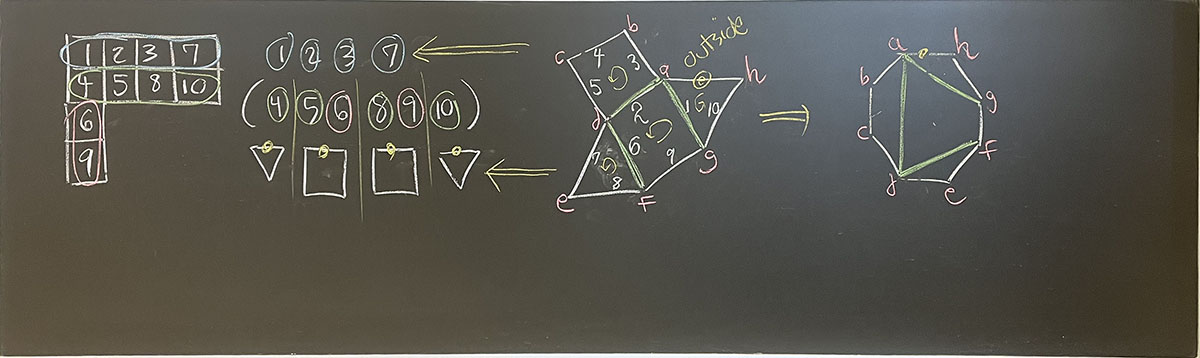 1 2 3 7
4 5 8 10
6
9
1 2 3 7
( 4 5 6 8 9 10 )
outside
b
c 4 3 a h
5 1 10
d 2
6 9 g
7 8
e f
a h
b g
c f
d e